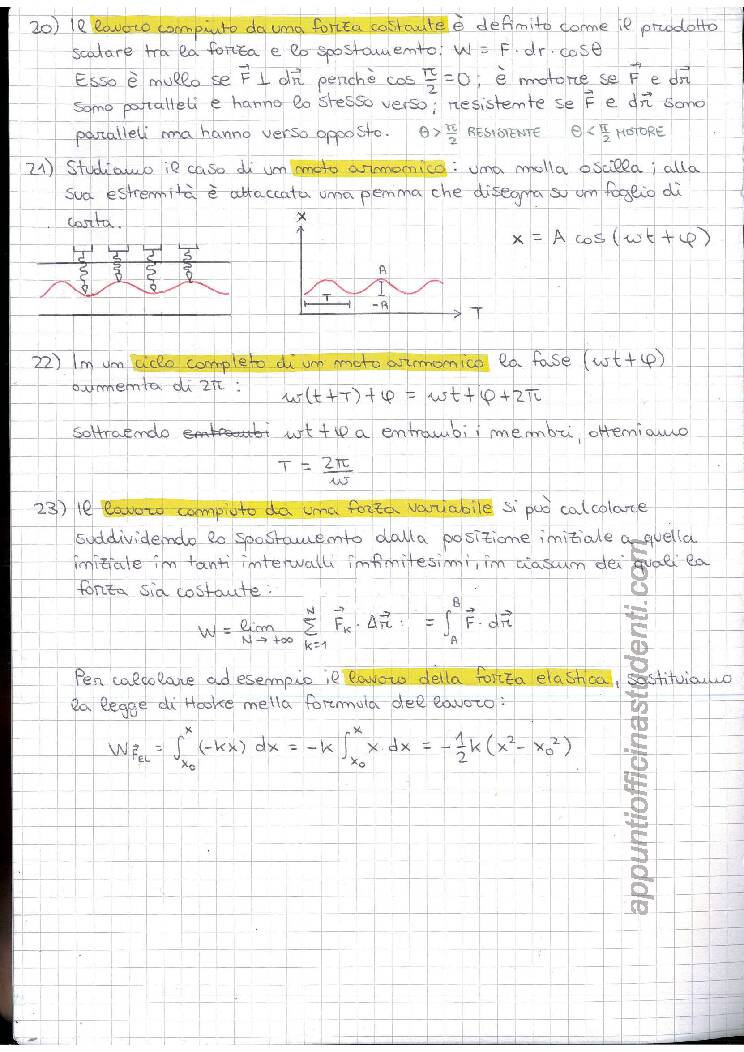 20) Il lavoro compiuto da una forza costante è definito come il prodotto
scalare tra la forza e lo spostamento: W = F · dr · cosθ
Esso è nullo se F⃗ ⊥ dr⃗ perchè cos π/2 = 0; è motore se F⃗ e dr⃗
sono paralleli e hanno lo stesso verso; resistente se F⃗ e dr⃗ sono
paralleli ma hanno verso opposto. θ > π/2 RESISTENTE θ < π/2 MOTORE
21) Studiamo il caso di un moto armonico: una molla oscilla; alla
sua estremità è attaccata una penna che disegna su un foglio di
carta.
x = A cos (ωt + φ)
X
A
T
-A
T
22) In un ciclo completo di un moto armonico la fase (ωt + φ)
aumenta di 2π: ω(t+T) + φ = ωt + φ + 2π
sottraendo entrambi ωt + φ a entrambi i membri, otteniamo
T = 2π/ω
23) Il lavoro compiuto da una forza variabile si può calcolare
suddividendo lo spostamento dalla posizione iniziale a quella
iniziale in tanti intervalli infinitesimi, in ciasum dei quali la
forza sia costante:
W = lim N→+∞ Σ k=1 N F⃗k · Δr⃗ = ∫ A B F⃗ · dr⃗
Per calcolare ad esempio il lavoro della forza elastica, sostituiamo
la legge di Hooke nella formula del lavoro:
W F⃗EL = ∫ x₀ x (-kx) dx = -k ∫ x₀ x x · dx = -½ k (x² - x₀²)
appuntiofficinastudenti.com